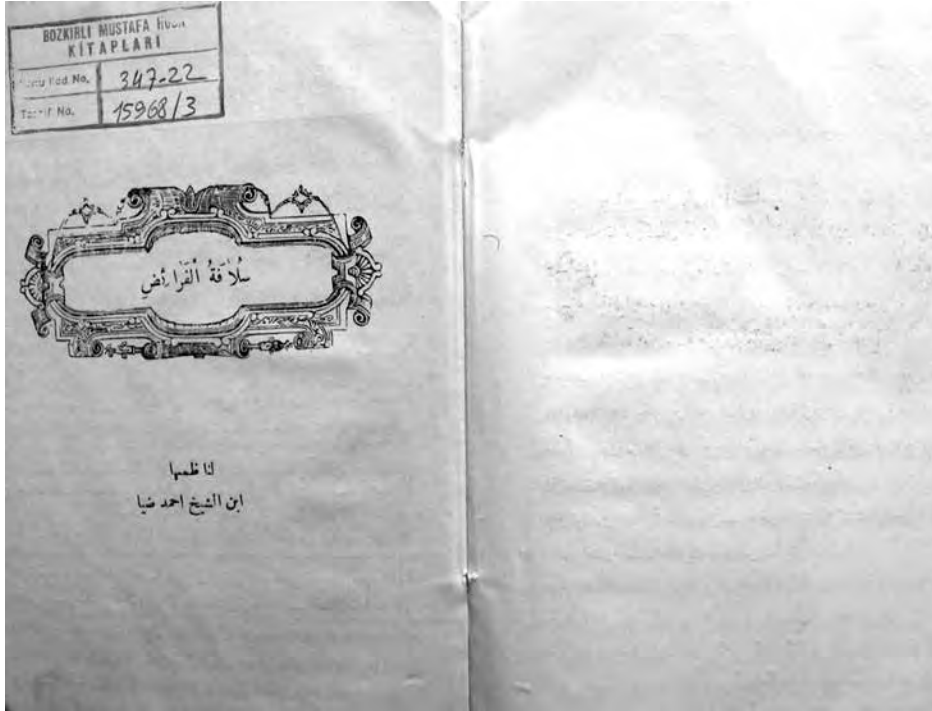 BOZKIRLI MUSTAFA
KİTAPLARI
No. 347-22
No. 15968/3
سُلَافَةُ الْفَرَائِضِ
لناظمها
ابن الشيخ احمد ضيا